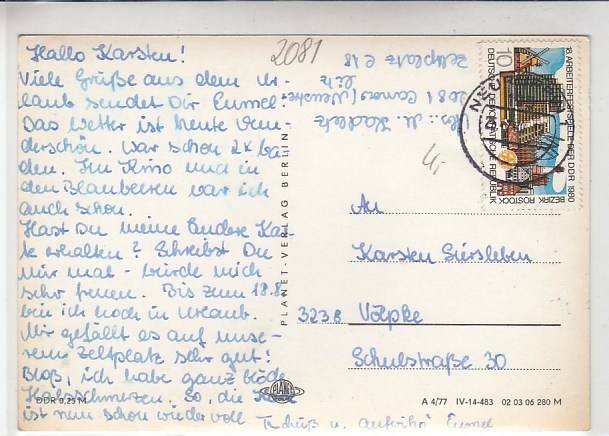 Hallo Karsten!
Viele Grüße aus dem Ur-
laub sendet Dir Eumel.
Das Wetter ist heute wun-
derschön. War schon 2x ba-
den. Im Kino und in
den Blaubeeren war ich
auch schon.
Hast Du meine andere Kar-
te erhalten? Schreibst Du
mir mal - würde mich
sehr freuen. Bis zum 18.8.
bin ich noch in Urlaub.
Mir gefällt es auf unse-
rem Zeltplatz sehr gut!
Bloß, ich habe ganz blöde
Halsschmerzen. So, die Karte
ist nun schon wieder voll
Tschüß u. Eumel
2081
2081 Canow (Neustre-
litz
Zeltplatz C18
4,-
18. ARBEITERFESTSPIELE DER DDR 1980
BEZIRK ROSTOCK
DEUTSCHE DEMOKRATISCHE REPUBLIK
10
PLANET-VERLAG BERLIN
An
Karsten Siersleben
3238 Völpke
Schulstraße 30
DDR 0,25 M
PLANET
A 4/77 IV-14-483 02 03 06 280 M